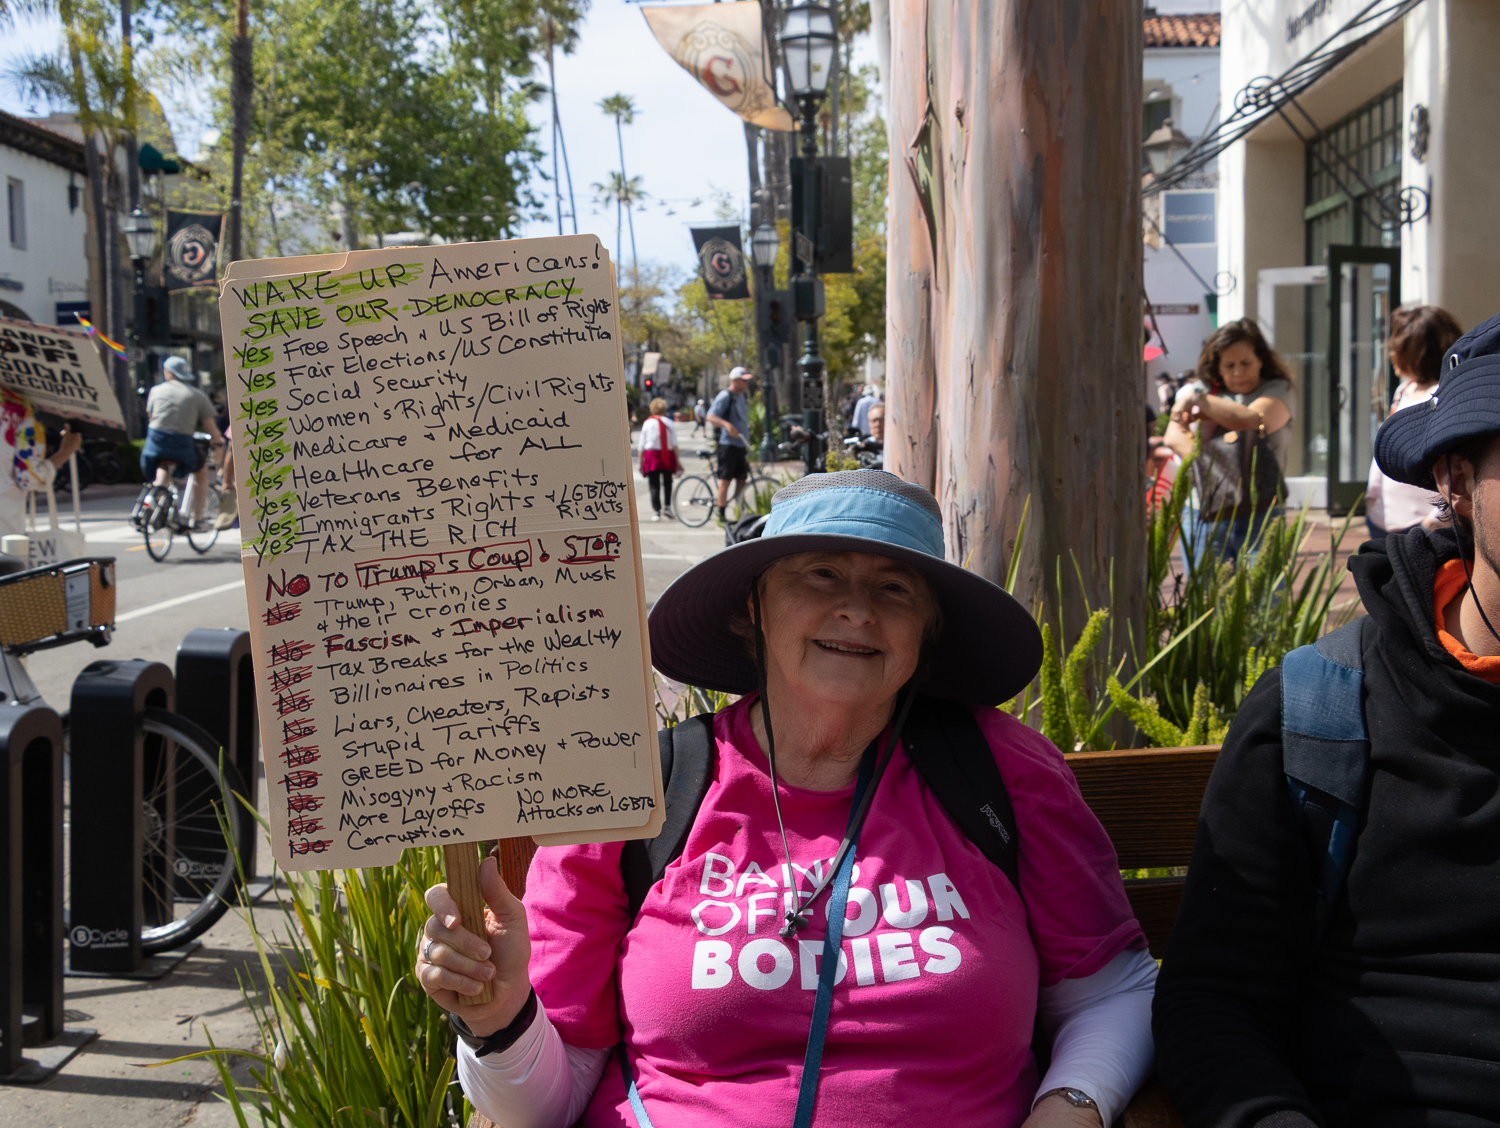 WAKE UP Americans!
SAVE OUR DEMOCRACY
Yes Free Speech + US Bill of Rights
Yes Fair Elections/US Constitution
Yes Social Security
Yes Women's Rights/Civil Rights
Yes Medicare + Medicaid
Yes Healthcare for ALL
Yes Veterans Benefits
Yes Immigrants Rights + LGBTQ+ Rights
Yes TAX THE RICH
NO TO Trump's Coup! STOP!
No Trump, Putin, Orban, Musk
& their cronies
No Fascism + Imperialism
No Tax Breaks for the Wealthy
No Billionaires in Politics
No Liars, Cheaters, Rapists
No Stupid Tariffs
No GREED for Money + Power
No Misogyny + Racism
No More Layoffs
No Corruption
NO MORE
Attacks on LGBTQ
BANS
OFF OUR
BODIES
HANDS
OFF!
SOCIAL
SECURITY
EW
G
G
G
BCycle
BCycle